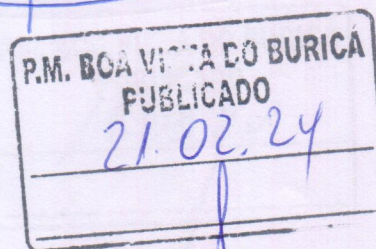 P.M. BOA VISTA DO BURICÁ
PUBLICADO
21.02.24